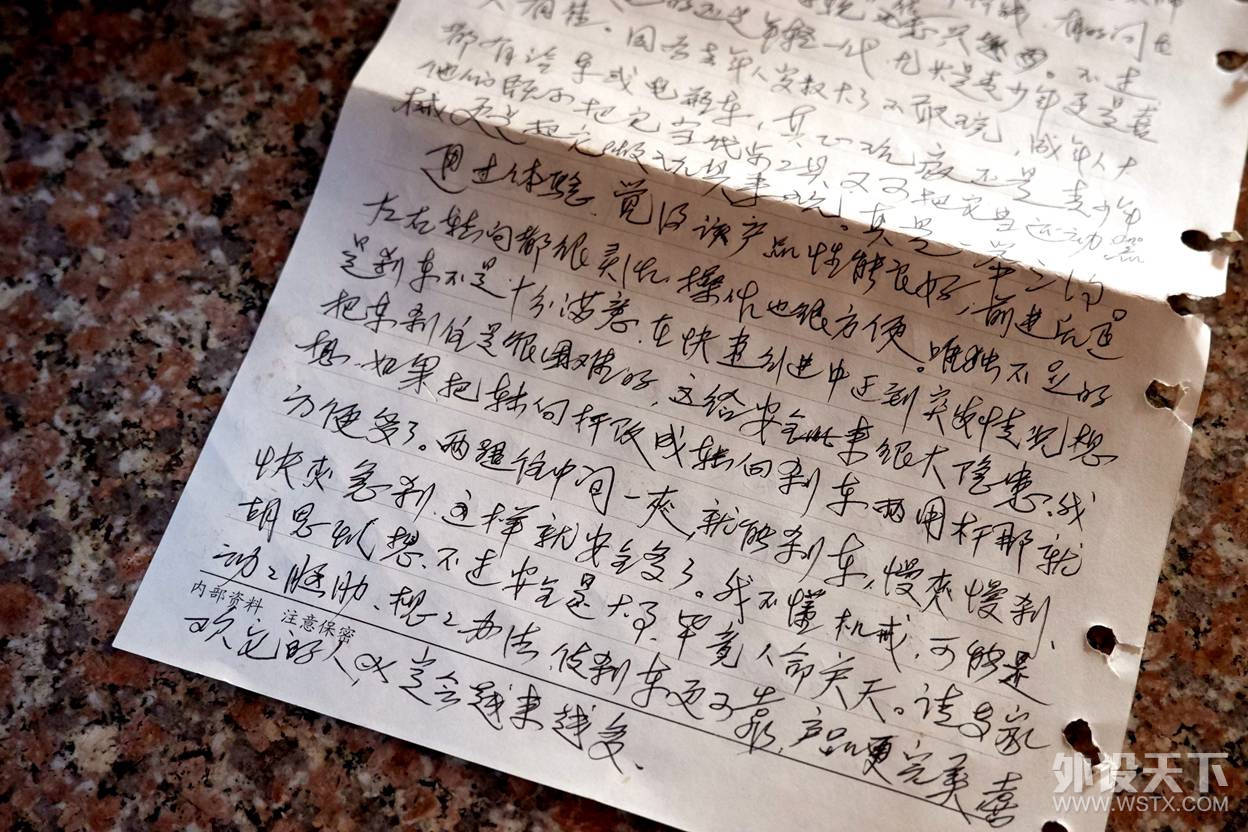 年轻一代,尤其是青少年更是喜
都有汽车或电瓶车,
他们既可把它当代步工具,又可把它当运动器
械,更
通过体验,觉得该产品性能很好,前进后退
左右转向都很灵活,操作也很方便。唯独不足的
是刹车不是十分满意,在快速行进中遇到突发情况想
把车刹住是很困难的,这给安全带来很大隐患。我
想,如果把转向杆改成转向刹车两用杆那就
方便多了。两腿往中间一夹,就能刹车,慢夹慢刹、
快夹急刹,这样就安全多了。我不懂机械,可能是
胡思乱想,不过安全是大事,毕竟人命关天。请专家
动动脑筋、想想办法,使刹车更可靠,产品更完美,喜
欢它的人,必定会越来越多。
内部资料 注意保密
外设天下
WWW.WSTX.COM